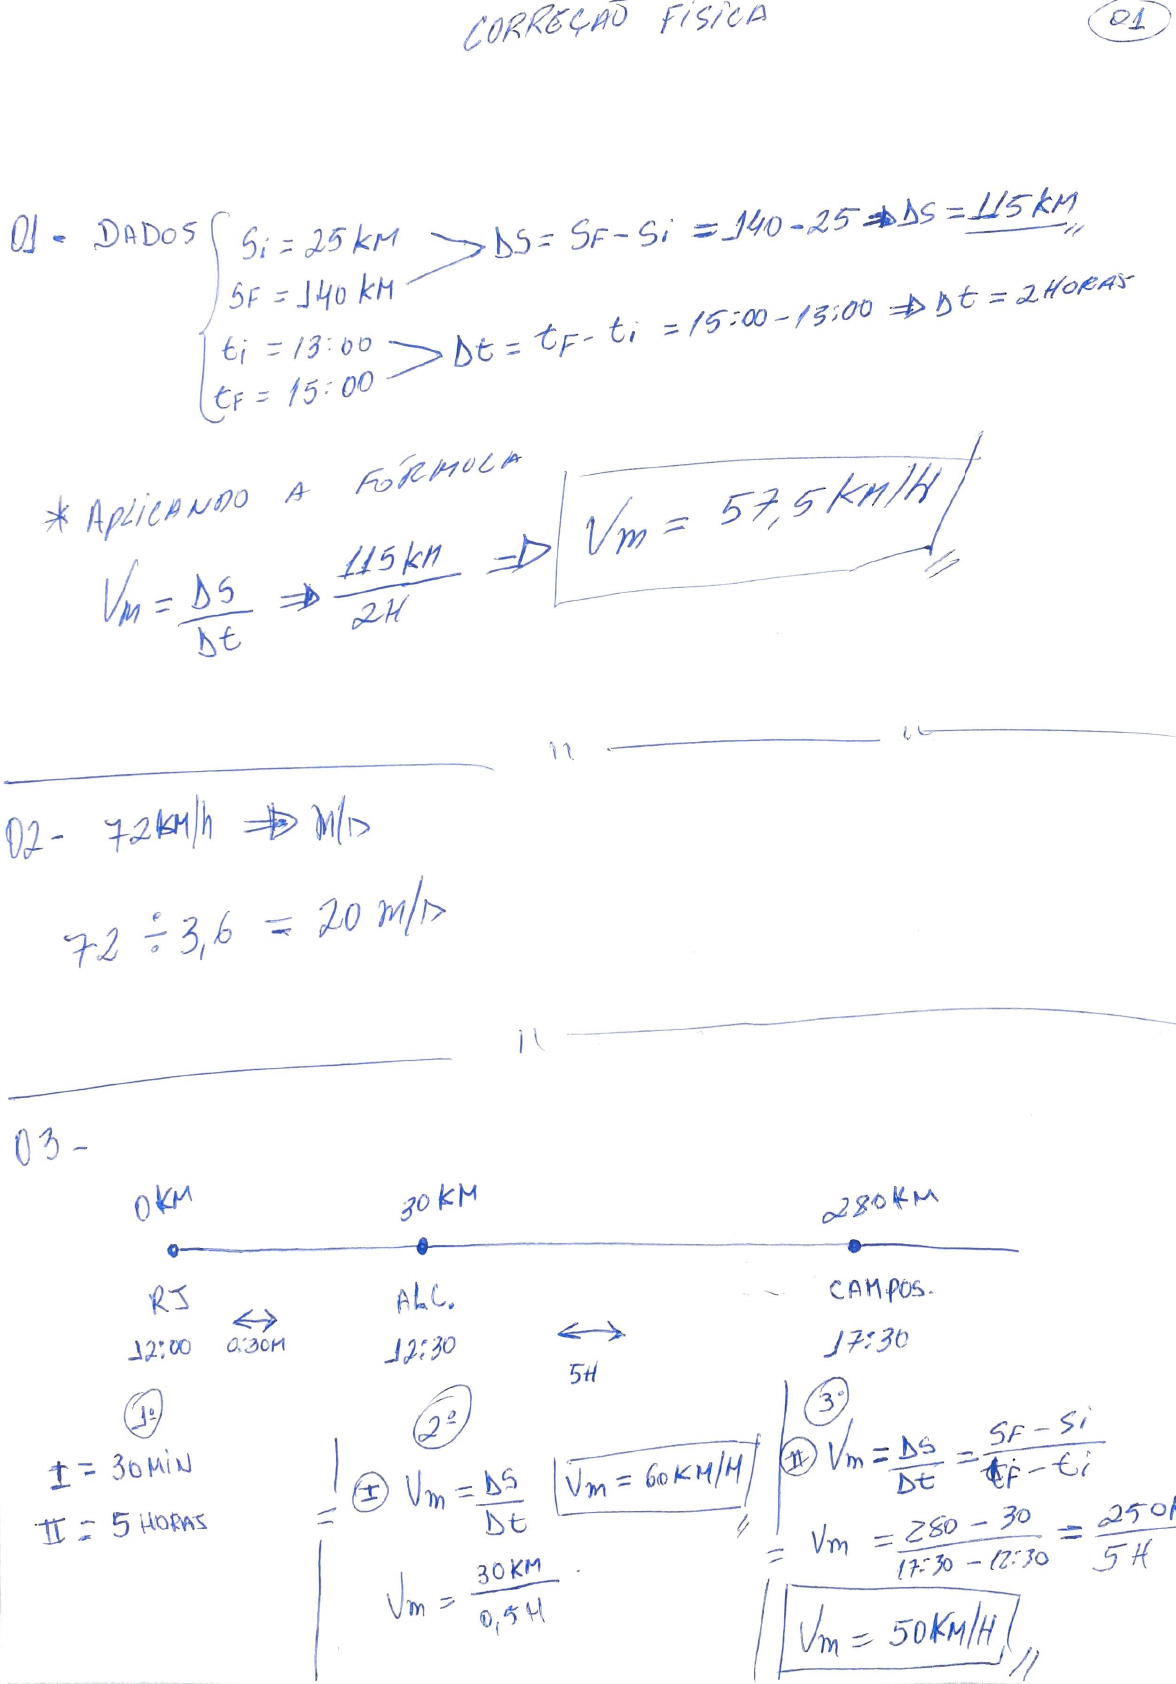 CORREÇÃO FÍSICA
01
01 - DADOS
Si = 25 KM
SF = 140 KM
ti = 13:00
tF = 15:00
ΔS = SF - Si = 140 - 25 ⇒ ΔS = 115 KM
Δt = tF - ti = 15:00 - 13:00 ⇒ Δt = 2 HORAS
* APLICANDO A FÓRMULA
Vm = ΔS/Δt ⇒ 115 KM/2H ⇒ Vm = 57,5 KM/H
02 - 72 KM/h ⇒ m/s
72 ÷ 3,6 = 20 m/s
03 -
0 KM 30 KM 280 KM
RJ ALC. CAMPOS.
12:00 0:30M 12:30 5H 17:30
1º
I = 30 MIN
II = 5 HORAS
2º
I Vm = ΔS/Δt Vm = 60 KM/H
Vm = 30 KM/0,5 H
3º
II Vm = ΔS/Δt = SF - Si/tF - ti
= Vm = 280 - 30/17:30 - 12:30 = 250K/5H
Vm = 50 KM/H